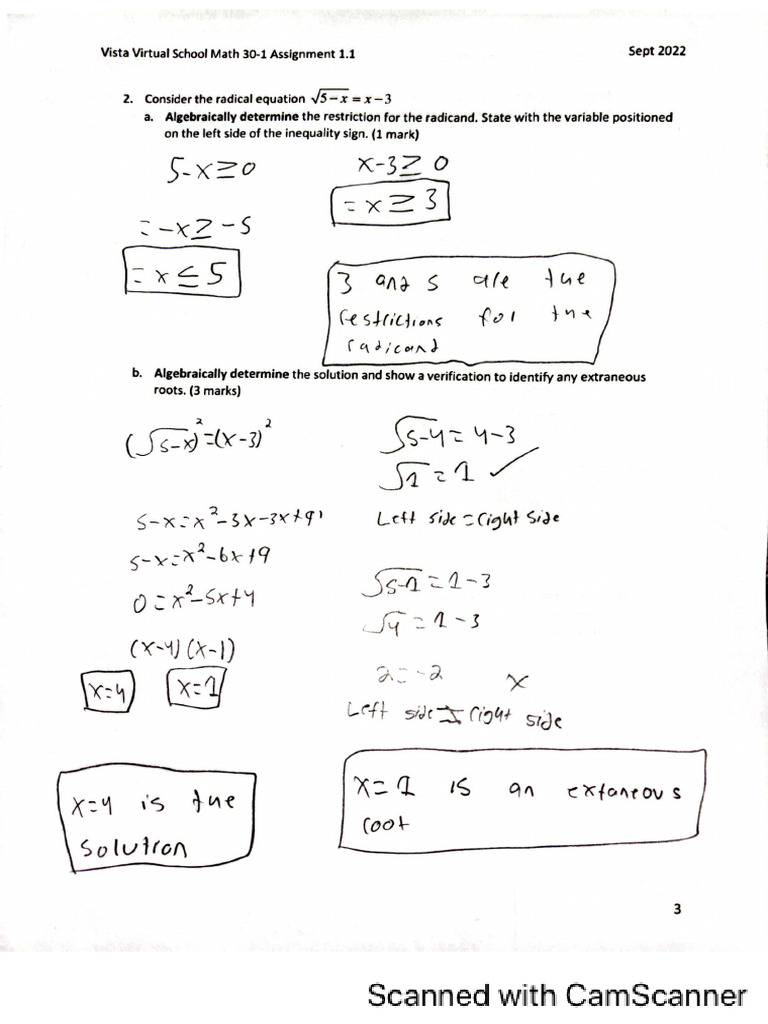 Vista Virtual School Math 30-1 Assignment 1.1
Sept 2022
2. Consider the radical equation √5−x = x−3
a. Algebraically determine the restriction for the radicand. State with the variable positioned
on the left side of the inequality sign. (1 mark)
5-x≥0
= -x≥ -5
= x ≤ 5
x-3≥ 0
= x ≥ 3
3 and 5 are the
restrictions for the
radicand
b. Algebraically determine the solution and show a verification to identify any extraneous
roots. (3 marks)
(√5-x)²=(x-3)²
5-x=x²-3x-3x+9
5-x=x²-6x+9
0=x²-5x+4
(x-4)(x-1)
x=4 x=1
√5-4=4-3
√1=1 ✓
Left side=right side
√5-1=1-3
√4=1-3
2=-2 x
Left side≠right side
x=4 is the
solution
x=1 is an extaneous
root
3
Scanned with CamScanner